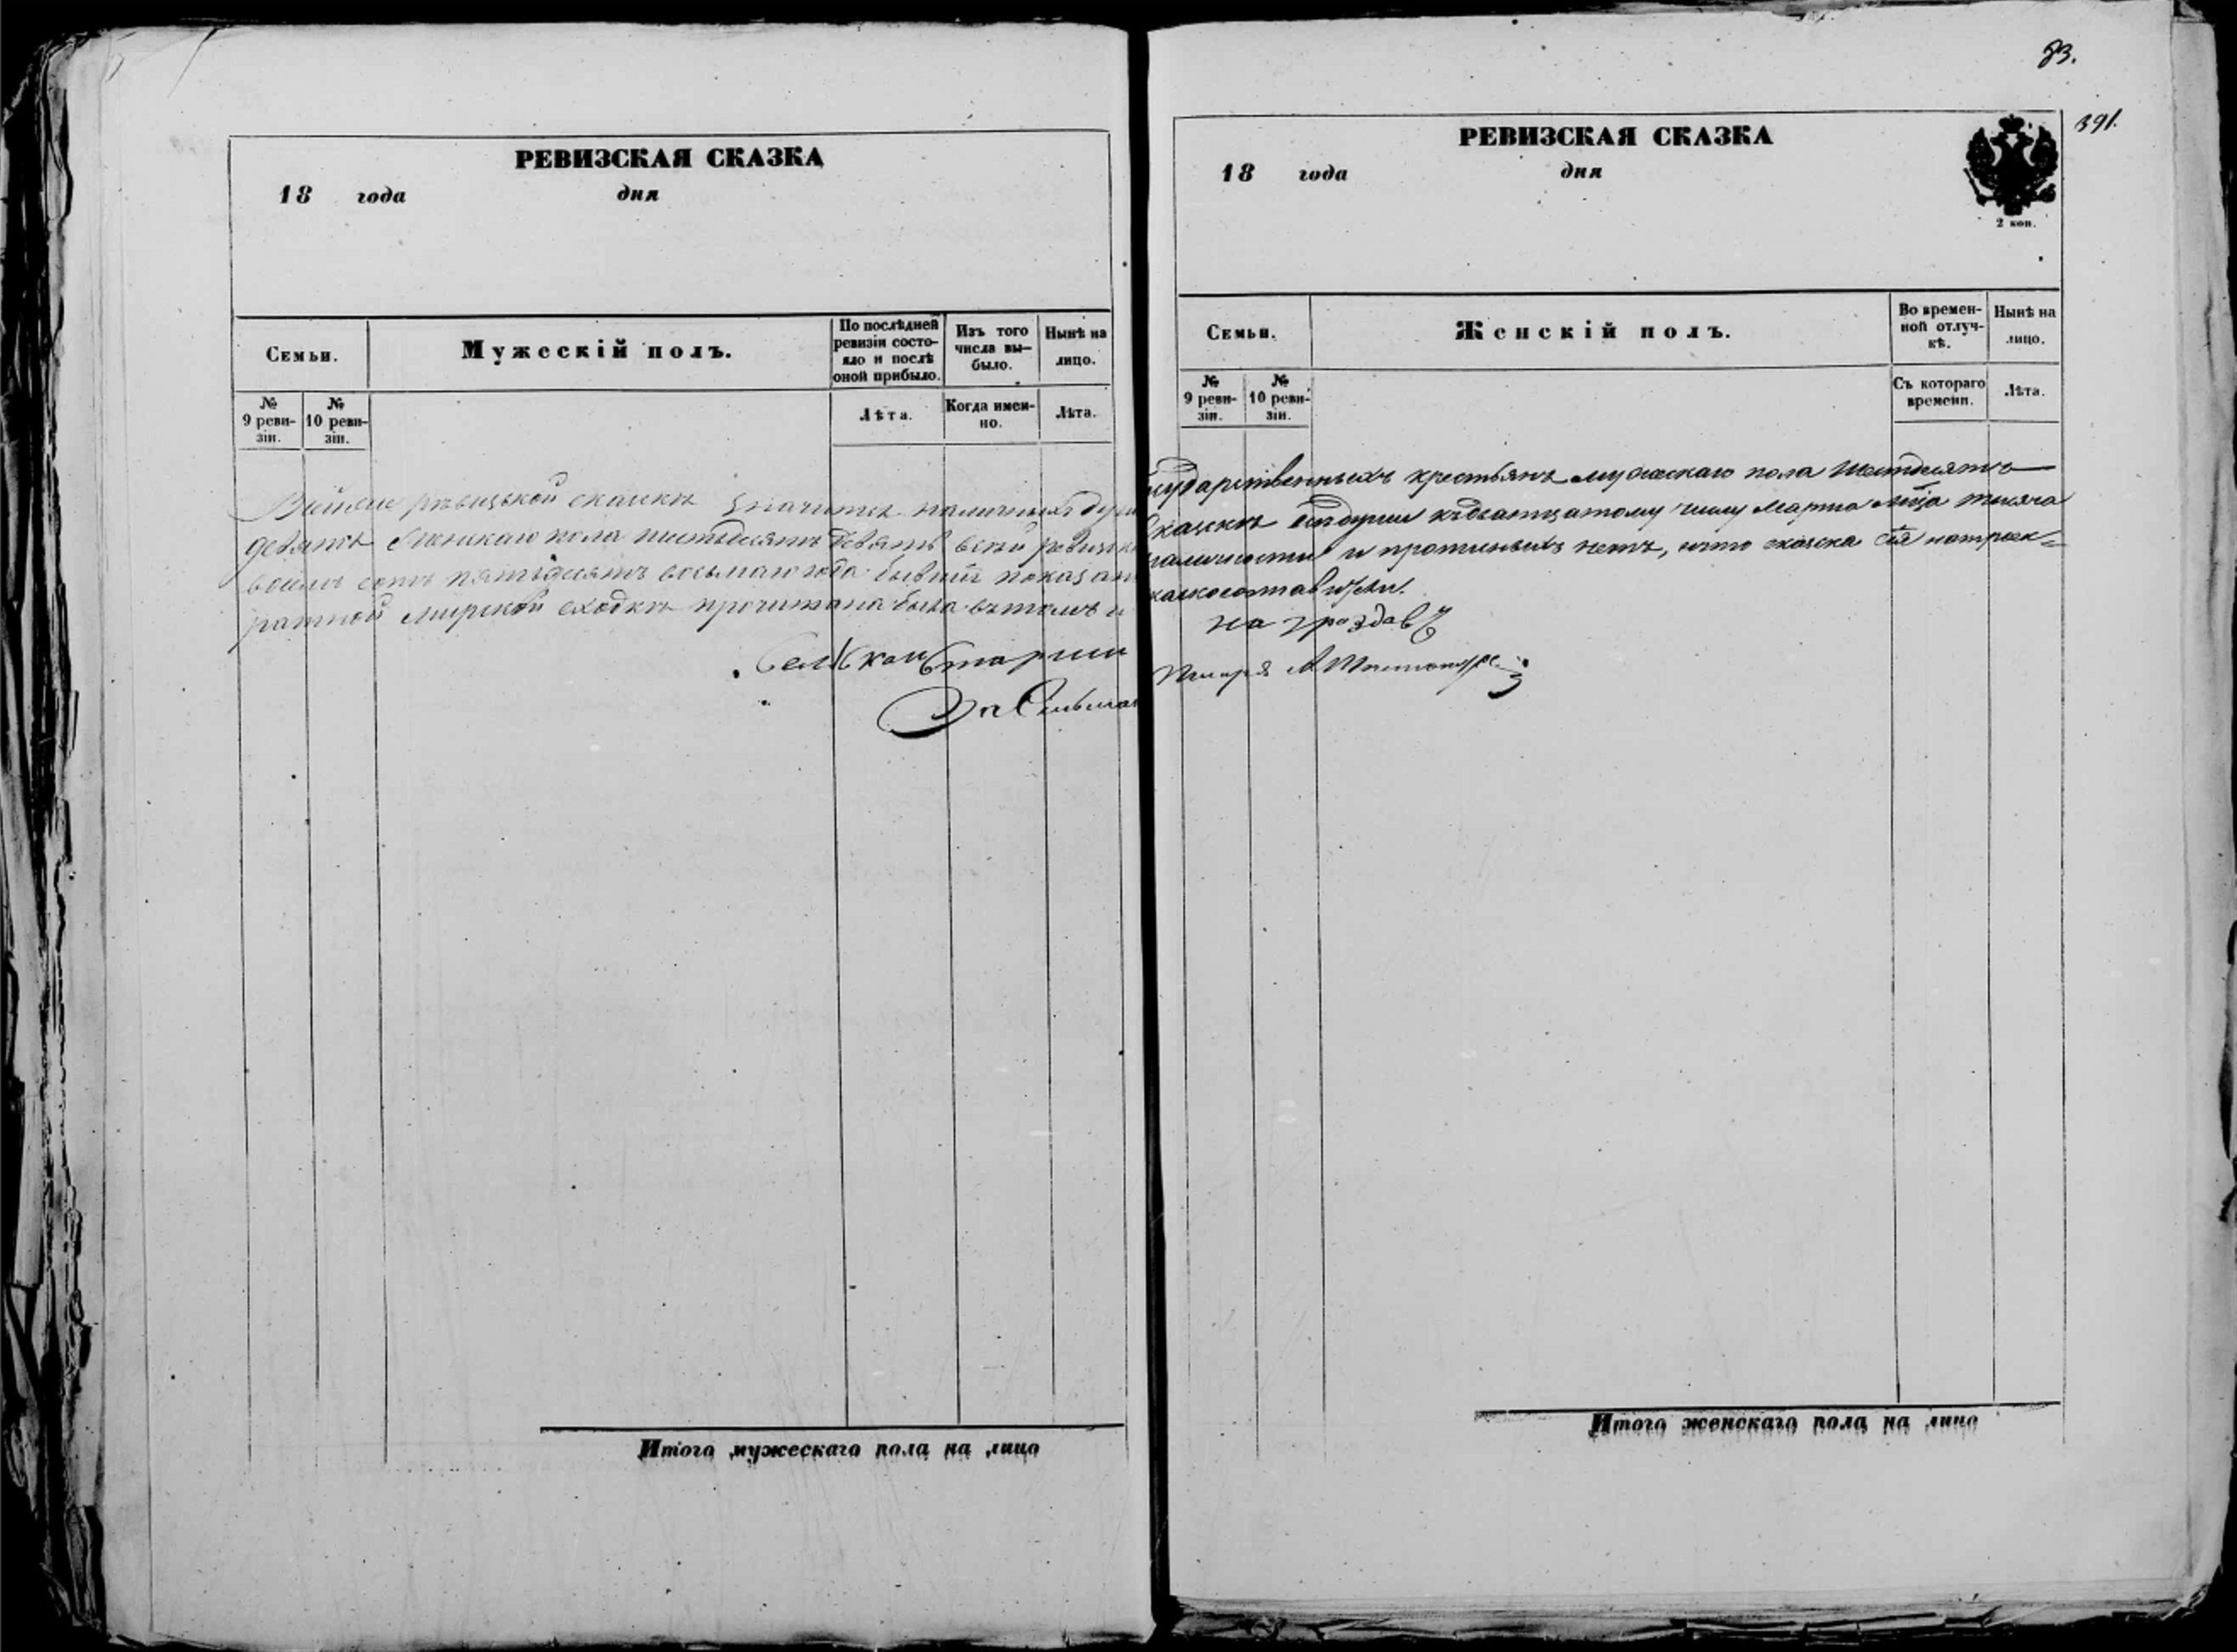 83.
391.
РЕВИЗСКАЯ СКАЗКА
18 года дня
Семьи.
Мужескій полъ.
По послѣдней ревизіи состояло и послѣ оной прибыло.
Изъ того числа выбыло.
Нынѣ на лицо.
№ 9 ревизіи.
№ 10 ревизіи.
Лѣта.
Когда именно.
Лѣта.
ревизской сказкѣ значится наличныхъ душ
девять женскаго пола шестьдесятъ девять
восемь сотъ пятьдесятъ восьмаго года
ратной мирской сходкѣ прочитана была въ томъ и
Итого мужескаго пола на лицо
РЕВИЗСКАЯ СКАЗКА
18 года дня
2 коп.
Семьи.
Женскій полъ.
Во временной отлучкѣ.
Нынѣ на лицо.
№ 9 ревизіи.
№ 10 ревизіи.
Съ котораго времени.
Лѣта.
сударственныхъ крестьянъ мужескаго пола шестьдесятъ
души къ двацатому числу марта мца тысяча
наличности и протчихъ нетъ, что сказка сія натроек-
на граздавЪ
Итого женскаго пола на лицо